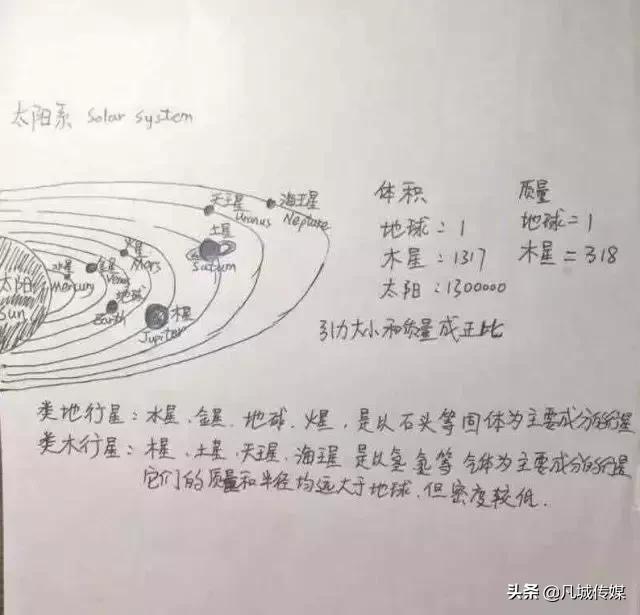 太阳系 Solar System
天王星
Uranus
海王星
Neptune
土星
Saturn
火星
Mars
水星
Mercury
金星
Venus
地球
Earth
木星
Jupiter
太阳
Sun
体积
地球:1
木星:1317
太阳:1300000
质量
地球=1
木星=318
引力大小和质量成正比
类地行星:水星、金星、地球、火星,是以石头等固体为主要成分的行星
类木行星:木星、土星、天王星、海王星 是以氢氦等气体为主要成分的行星
它们的质量和半径均远大于地球,但密度较低.
头条 @凡城传媒